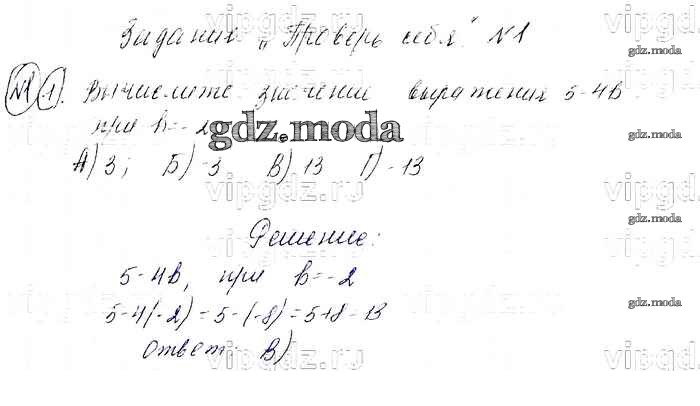 Задание „Проверь себя" №1
№1 1). Вычислите значение выражения 5-4b
при b=-2
А) 3; Б) -3 В) 13 Г) -13
Решение:
5-4b, при b=-2
5-4(-2)=5-(-8)=5+8=13
Ответ: В)
gdz.moda
gdz.moda
gdz.moda
gdz.moda
gdz.moda